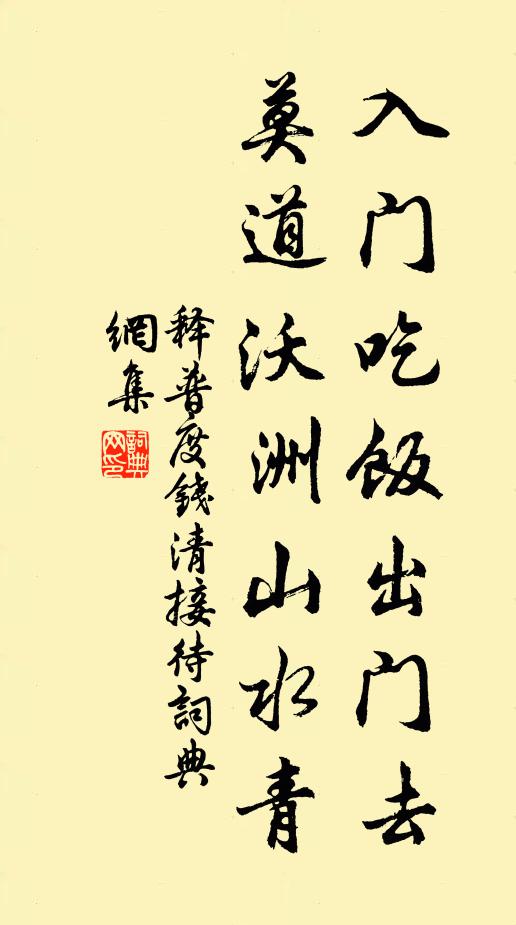 入门吃飯出门去
莫道沃洲山水青
释普度錢清接待詞典
網集
詞典网印